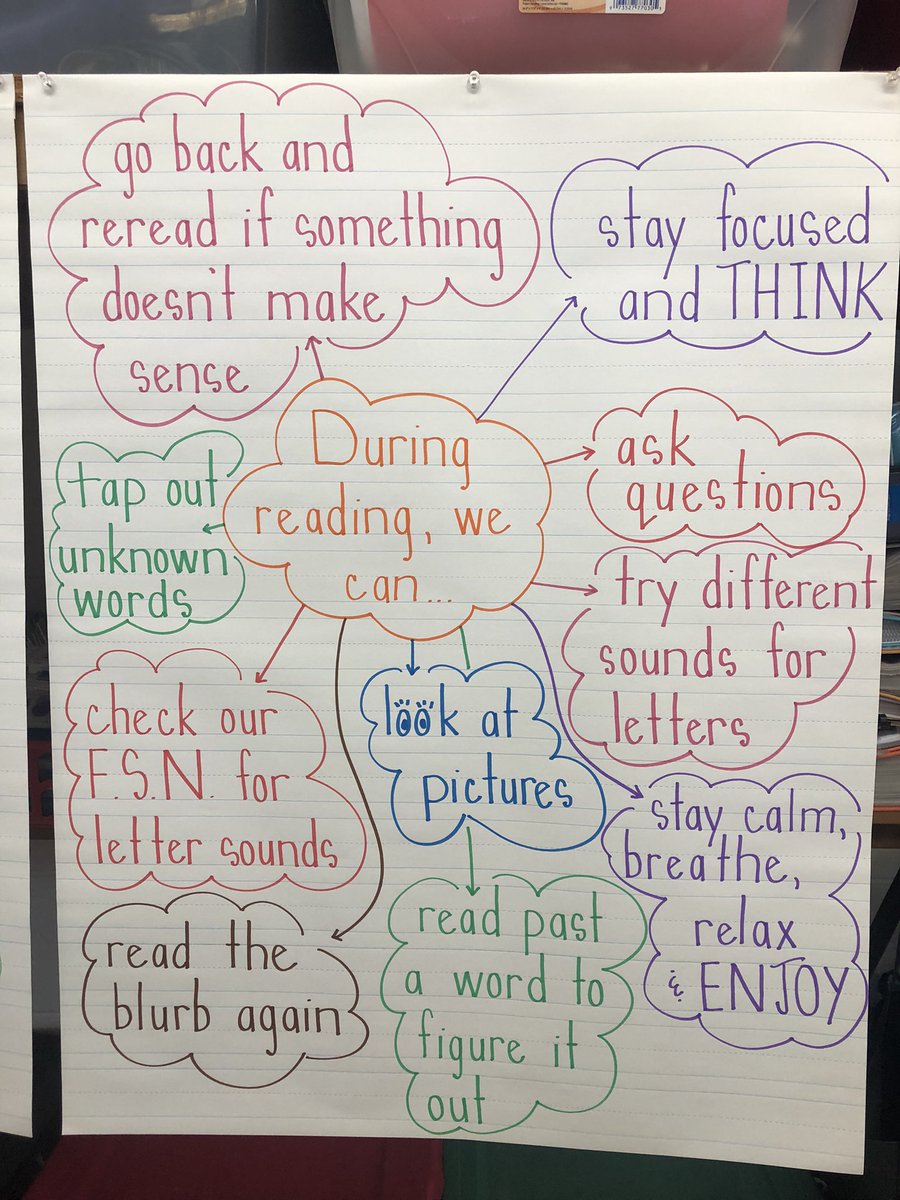 go back and
reread if something
doesn't make
sense
stay focused
and THINK
During
reading, we
can...
ask
questions
tap out
unknown
words
try different
sounds for
letters
check our
F.S.N. for
letter sounds
look at
pictures
stay calm,
breathe,
relax
& ENJOY
read the
blurb again
read past
a word to
figure it
out